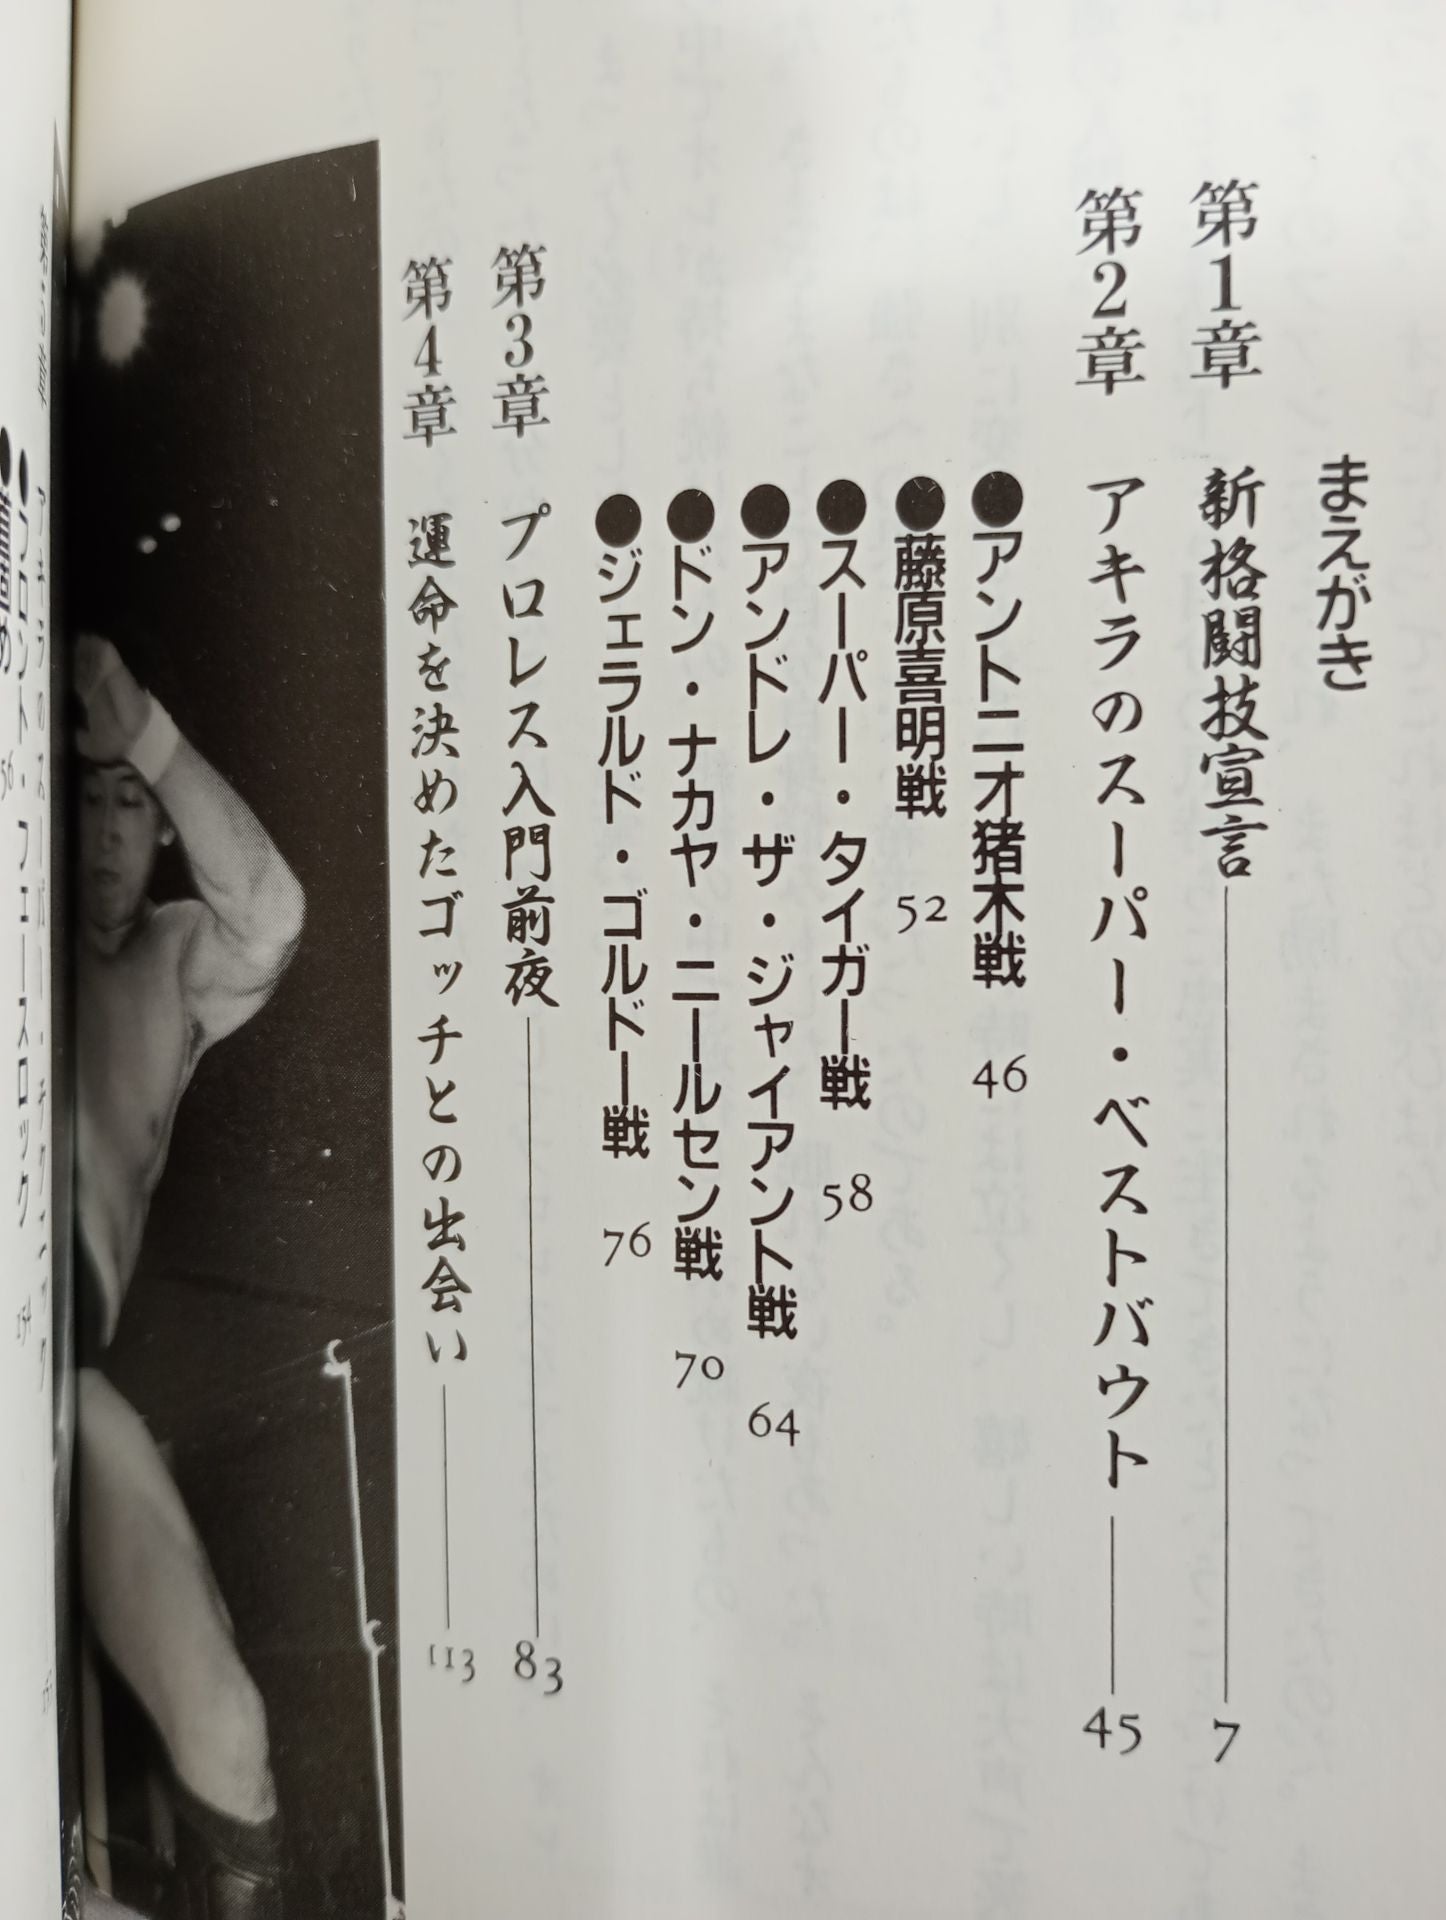 まえがき
第1章 新格闘技宣言 7
第2章 アキラのスーパー・ベストバウト 45
●アントニオ猪木戦 46
●藤原喜明戦 52
●スーパー・タイガー戦 58
●アンドレ・ザ・ジャイアント戦 64
●ドン・ナカヤ・ニールセン戦 70
●ジェラルド・ゴルドー戦 76
第3章 プロレス入門前夜 83
第4章 運命を決めたゴッチとの出会い 113
●フロント・フェースロック 154